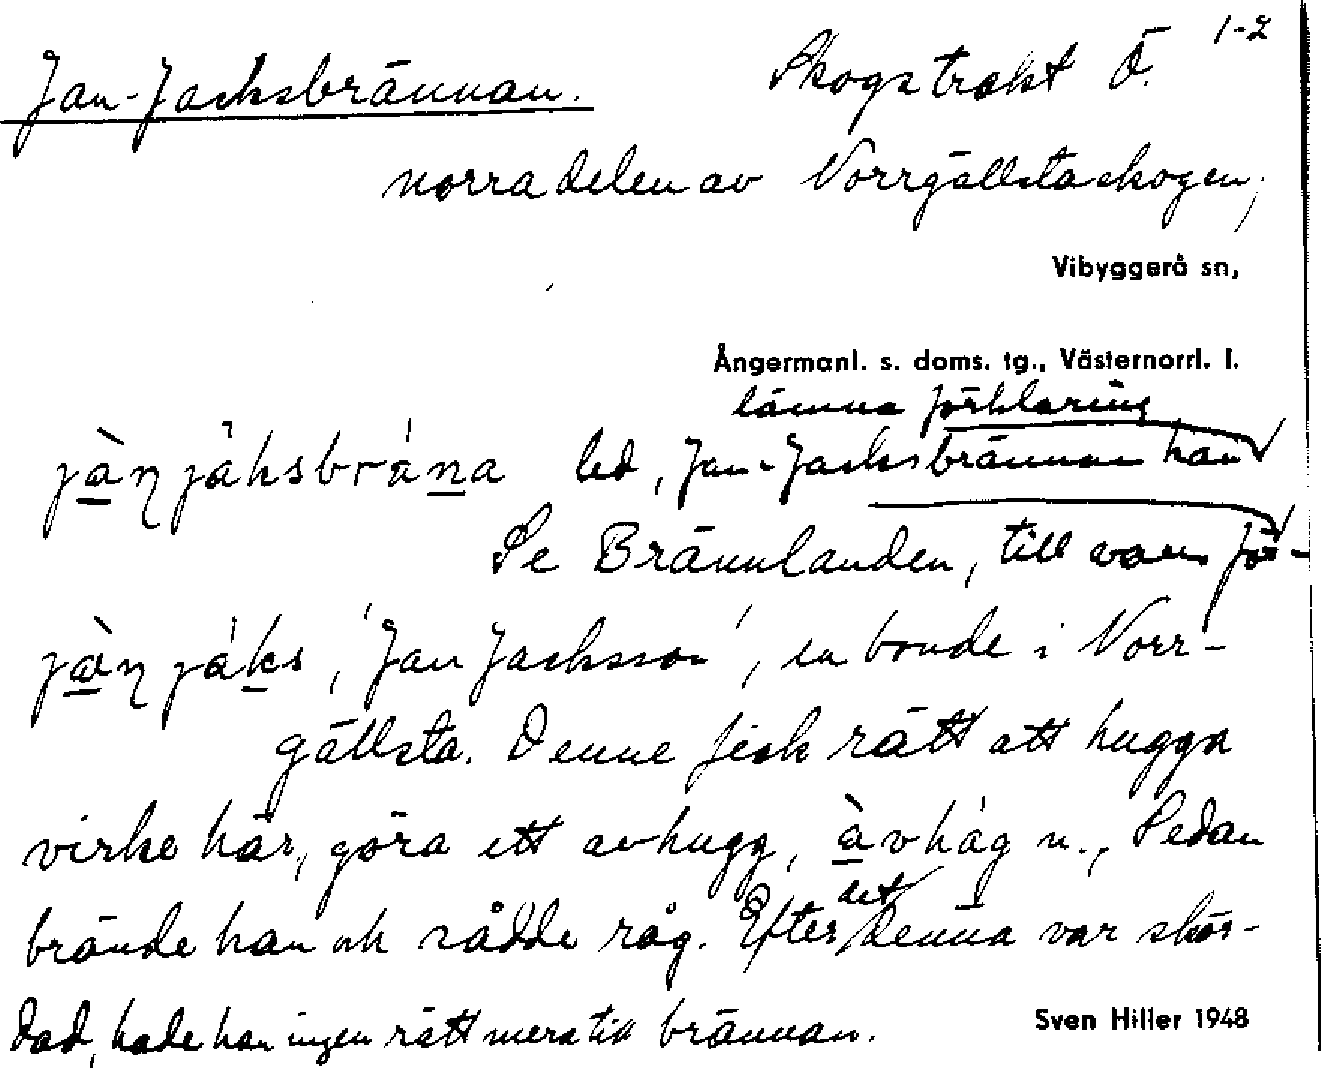 1-2
Jan-Jacksbrännan. Skogstrakt Ö.
norra delen av Norrgällstaskogen,
Vibyggerå sn,
Ångermanl. s. doms. tg., Västernorrl. l.
lämna förklaring
jàn jáksbrána led, Jan-Jacksbrännan kan
Se Brännlanden, till vars för-
jàn jáks, 'Jan Jacksson', en bonde i Norr-
gällsta. Denne fick rätt att hugga
virke här, göra ett avhugg, àvhág n., Sedan
brände han och sådde råg. Efter det denna var skör-
dad, hade han ingen rätt mera till brännan.
Sven Hiller 1948